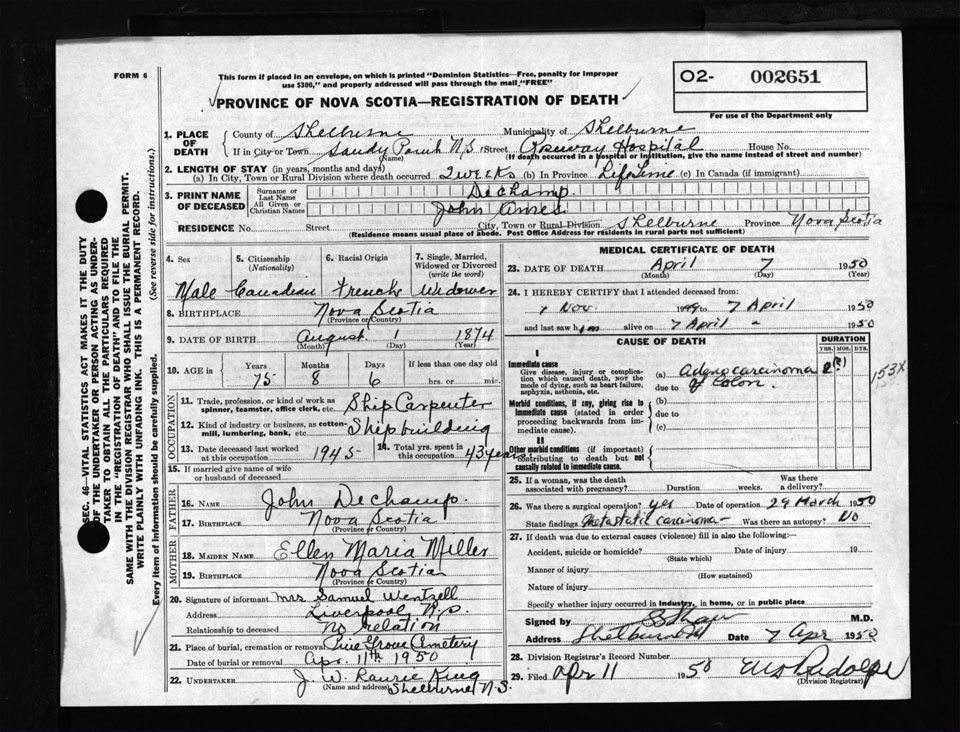 FORM 6
This form if placed in an envelope, on which is printed "Dominion Statistics—Free, penalty for improper
use $300," and properly addressed will pass through the mail "FREE"
PROVINCE OF NOVA SCOTIA—REGISTRATION OF DEATH
O2- 002651
For use of the Department only
SEC. 46—VITAL STATISTICS ACT MAKES IT THE DUTY
OF THE UNDERTAKER OR PERSON ACTING AS UNDER-
TAKER TO OBTAIN ALL THE PARTICULARS REQUIRED
IN THE "REGISTRATION OF DEATH" AND TO FILE THE
SAME WITH THE DIVISION REGISTRAR WHO SHALL ISSUE THE BURIAL PERMIT.
WRITE PLAINLY WITH UNFADING INK. THIS IS A PERMANENT RECORD.
Every item of information should be carefully supplied. (See reverse side for instructions.)
1. PLACE OF DEATH
County of Shelburne Municipality of Shelburne
If in City or Town Sandy Point N.S Street Roseway Hospital House No.
(Name) (If death occurred in a hospital or institution, give the name instead of street and number)
2. LENGTH OF STAY (in years, months and days)
(a) In City, Town or Rural Division where death occurred 2 weeks (b) In Province LifeTime (c) In Canada (if immigrant)
3. PRINT NAME OF DECEASED
Surname or Last Name DeChamp.
All Given or Christian Names John Ames
RESIDENCE No. Street City, Town or Rural Division Shelburne Province Nova Scotia
(Residence means usual place of abode. Post Office Address for residents in rural parts not sufficient)
4. Sex 5. Citizenship (Nationality) 6. Racial Origin 7. Single, Married, Widowed or Divorced (write the word)
Male Canadian French Widower
8. BIRTHPLACE Nova Scotia
(Province or Country)
9. DATE OF BIRTH August 1 1874
(Month) (Day) (Year)
10. AGE in Years Months Days If less than one day old
75 8 6 hrs. or min.
OCCUPATION
11. Trade, profession, or kind of work as spinner, teamster, office clerk, etc. Ship Carpenter
12. Kind of industry or business, as cotton-mill, lumbering, bank, etc. Shipbuilding
13. Date deceased last worked at this occupation 1945 14. Total yrs. spent in this occupation 43 years
15. If married give name of wife or husband of deceased
FATHER
16. NAME John DeChamp.
17. BIRTHPLACE Nova Scotia
(Province or Country)
MOTHER
18. MAIDEN NAME Ellen Maria Miller
19. BIRTHPLACE Nova Scotia
(Province or Country)
20. Signature of informant Mrs Samuel Wentzell
Address Liverpool, N.S.
Relationship to deceased No relation
21. Place of burial, cremation or removal Pine Grove Cemetery
Date of burial or removal Apr. 11th 1950
22. UNDERTAKER J. W. Laurie King
(Name and address) Shelburne N.S.
MEDICAL CERTIFICATE OF DEATH
23. DATE OF DEATH April 7 1950
(Month) (Day) (Year)
24. I HEREBY CERTIFY that I attended deceased from:
Nov. 1949 7 April 1950
and last saw him alive on 7 April 1950
CAUSE OF DEATH DURATION
YRS. MOS. DYS.
I
Immediate cause
Give disease, injury or complication which caused death, NOT the mode of dying, such as heart failure, asphyxia, asthenia, etc.
(a) Adenocarcinoma 153X
due to of Colon.
Morbid conditions, if any, giving rise to immediate cause (stated in order proceeding backwards from immediate cause).
(b)
due to
(c)
II
Other morbid conditions (if important) contributing to death but not causally related to immediate cause.
25. If a woman, was the death associated with pregnancy? Duration weeks. Was there a delivery?
26. Was there a surgical operation? yes Date of operation 29 March 1950
State findings Metastatic carcinoma Was there an autopsy? No
27. If death was due to external causes (violence) fill in also the following:—
Accident, suicide or homicide? Date of injury 19
(State which)
Manner of injury
(How sustained)
Nature of injury
Specify whether injury occurred in industry, in home, or in public place
Signed by M.D.
Address Shelburne Date 7 Apr 1950
28. Division Registrar's Record Number
29. Filed Apr 11 1950 Rudolph
(Division Registrar)